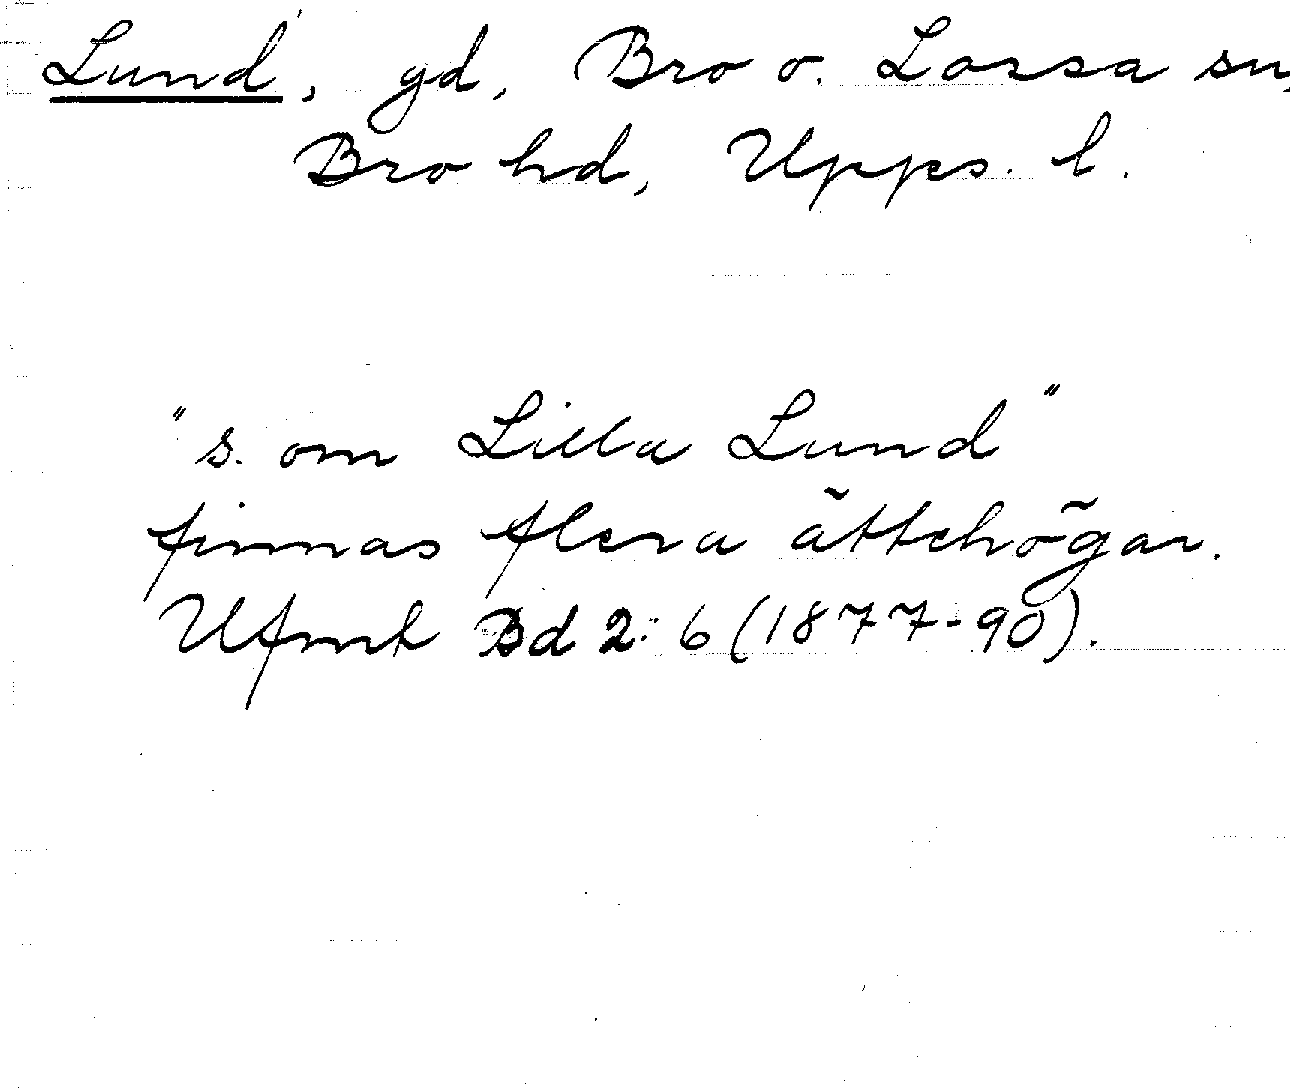 Lund, gd, Bro o. Lossa sn,
Bro hd, Upps. l.
"s. om Lilla Lund"
finnas flera ättehögar.
Ufmt Bd 2: 6 (1877-90).